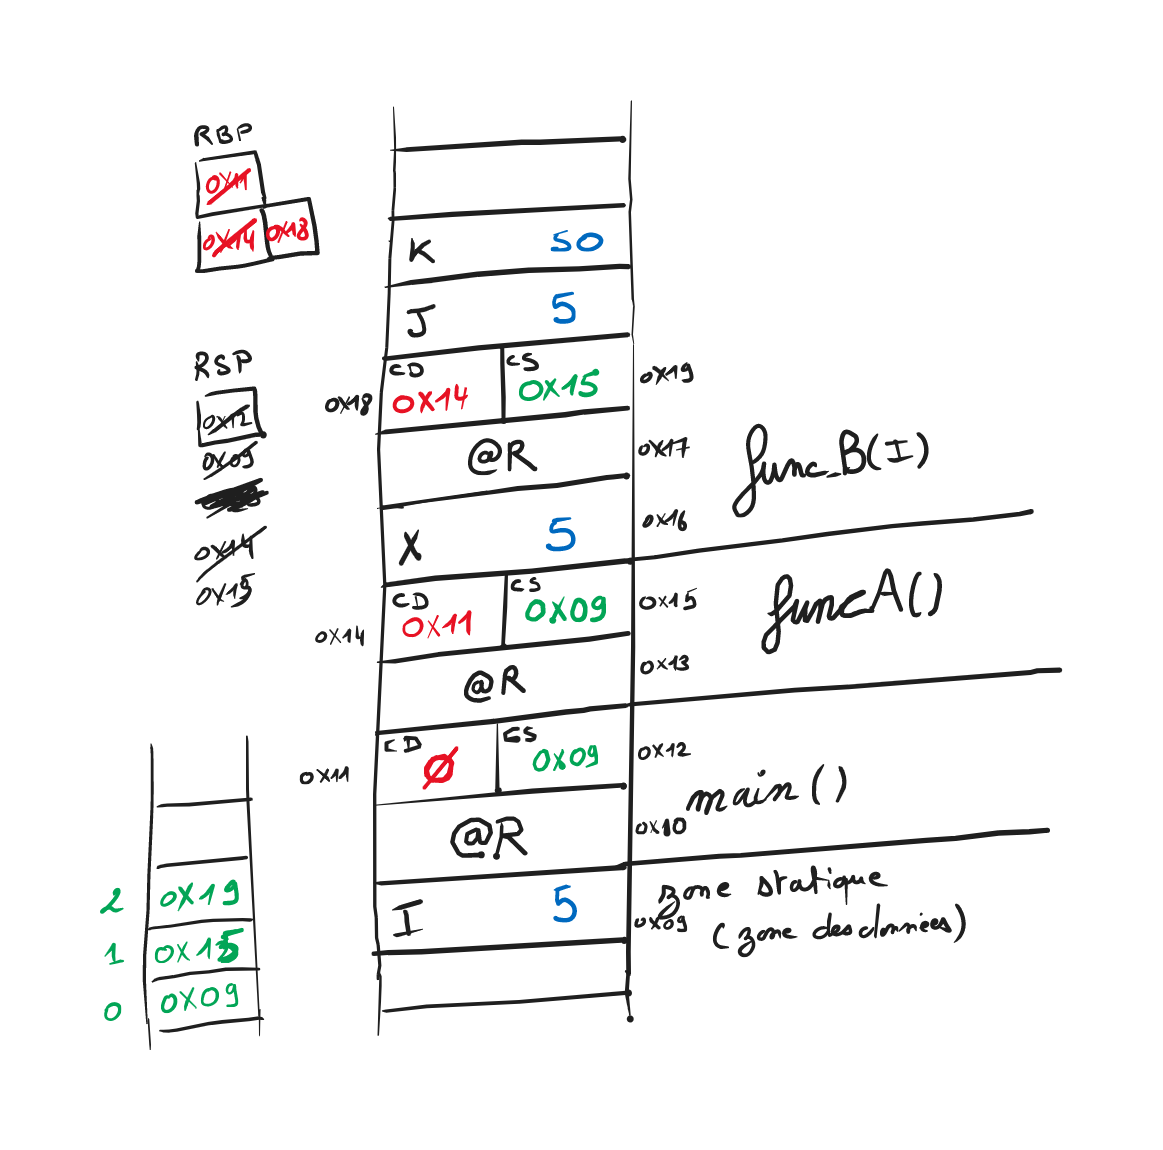 RBP
0x11
0x14 0x18
K 50
J 5
RSP
0x12
0x09
0x14
0x15
0x18 CD 0x14 CS 0x15 0x19
@R 0x17
func_B(I)
X 5 0x16
0x14 CD 0x11 CS 0x09 0x15
funcA()
@R 0x13
0x11 CD Ø CS 0x09 0x12
main()
@R 0x10
I 5 0x09
zone statique
(zone des données)
2 0x19
1 0x15
0 0x09